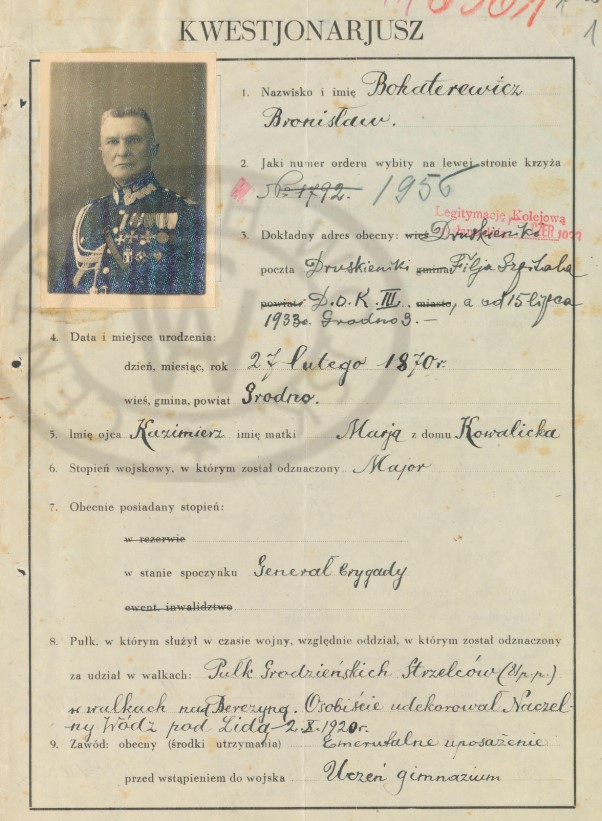 KWESTJONARJUSZ
1
1. Nazwisko i imię Bohaterewicz
Bronisław.
2. Jaki numer orderu wybity na lewej stronie krzyża
№ 1792. 1956
Legitymację Kolejową
3. Dokładny adres obecny: wieś Druskieniki
poczta Druskieniki gmina Filja Szpitala
powiat D.O.K. III miasto, a od 15 lipca
1933r. Grodno 3. —
4. Data i miejsce urodzenia:
dzień, miesiąc, rok 27 lutego 1870r.
wieś, gmina, powiat Grodno.
5. Imię ojca Kazimierz imię matki Marja z domu Kowalicka
6. Stopień wojskowy, w którym został odznaczony Major
7. Obecnie posiadany stopień:
w rezerwie
w stanie spoczynku Generał brygady
ewent. inwalidztwo
8. Pułk, w którym służył w czasie wojny, względnie oddział, w którym został odznaczony
za udział w walkach: Pułk Grodzieńskich Strzelców (81 p.p.)
w walkach nad Berezyną. Osobiście udekorował Naczel-
ny Wódz pod Lidą 2.X.1920r.
9. Zawód: obecny (środki utrzymania) Emerytalne uposażenie
przed wstąpieniem do wojska Uczeń gimnazjum